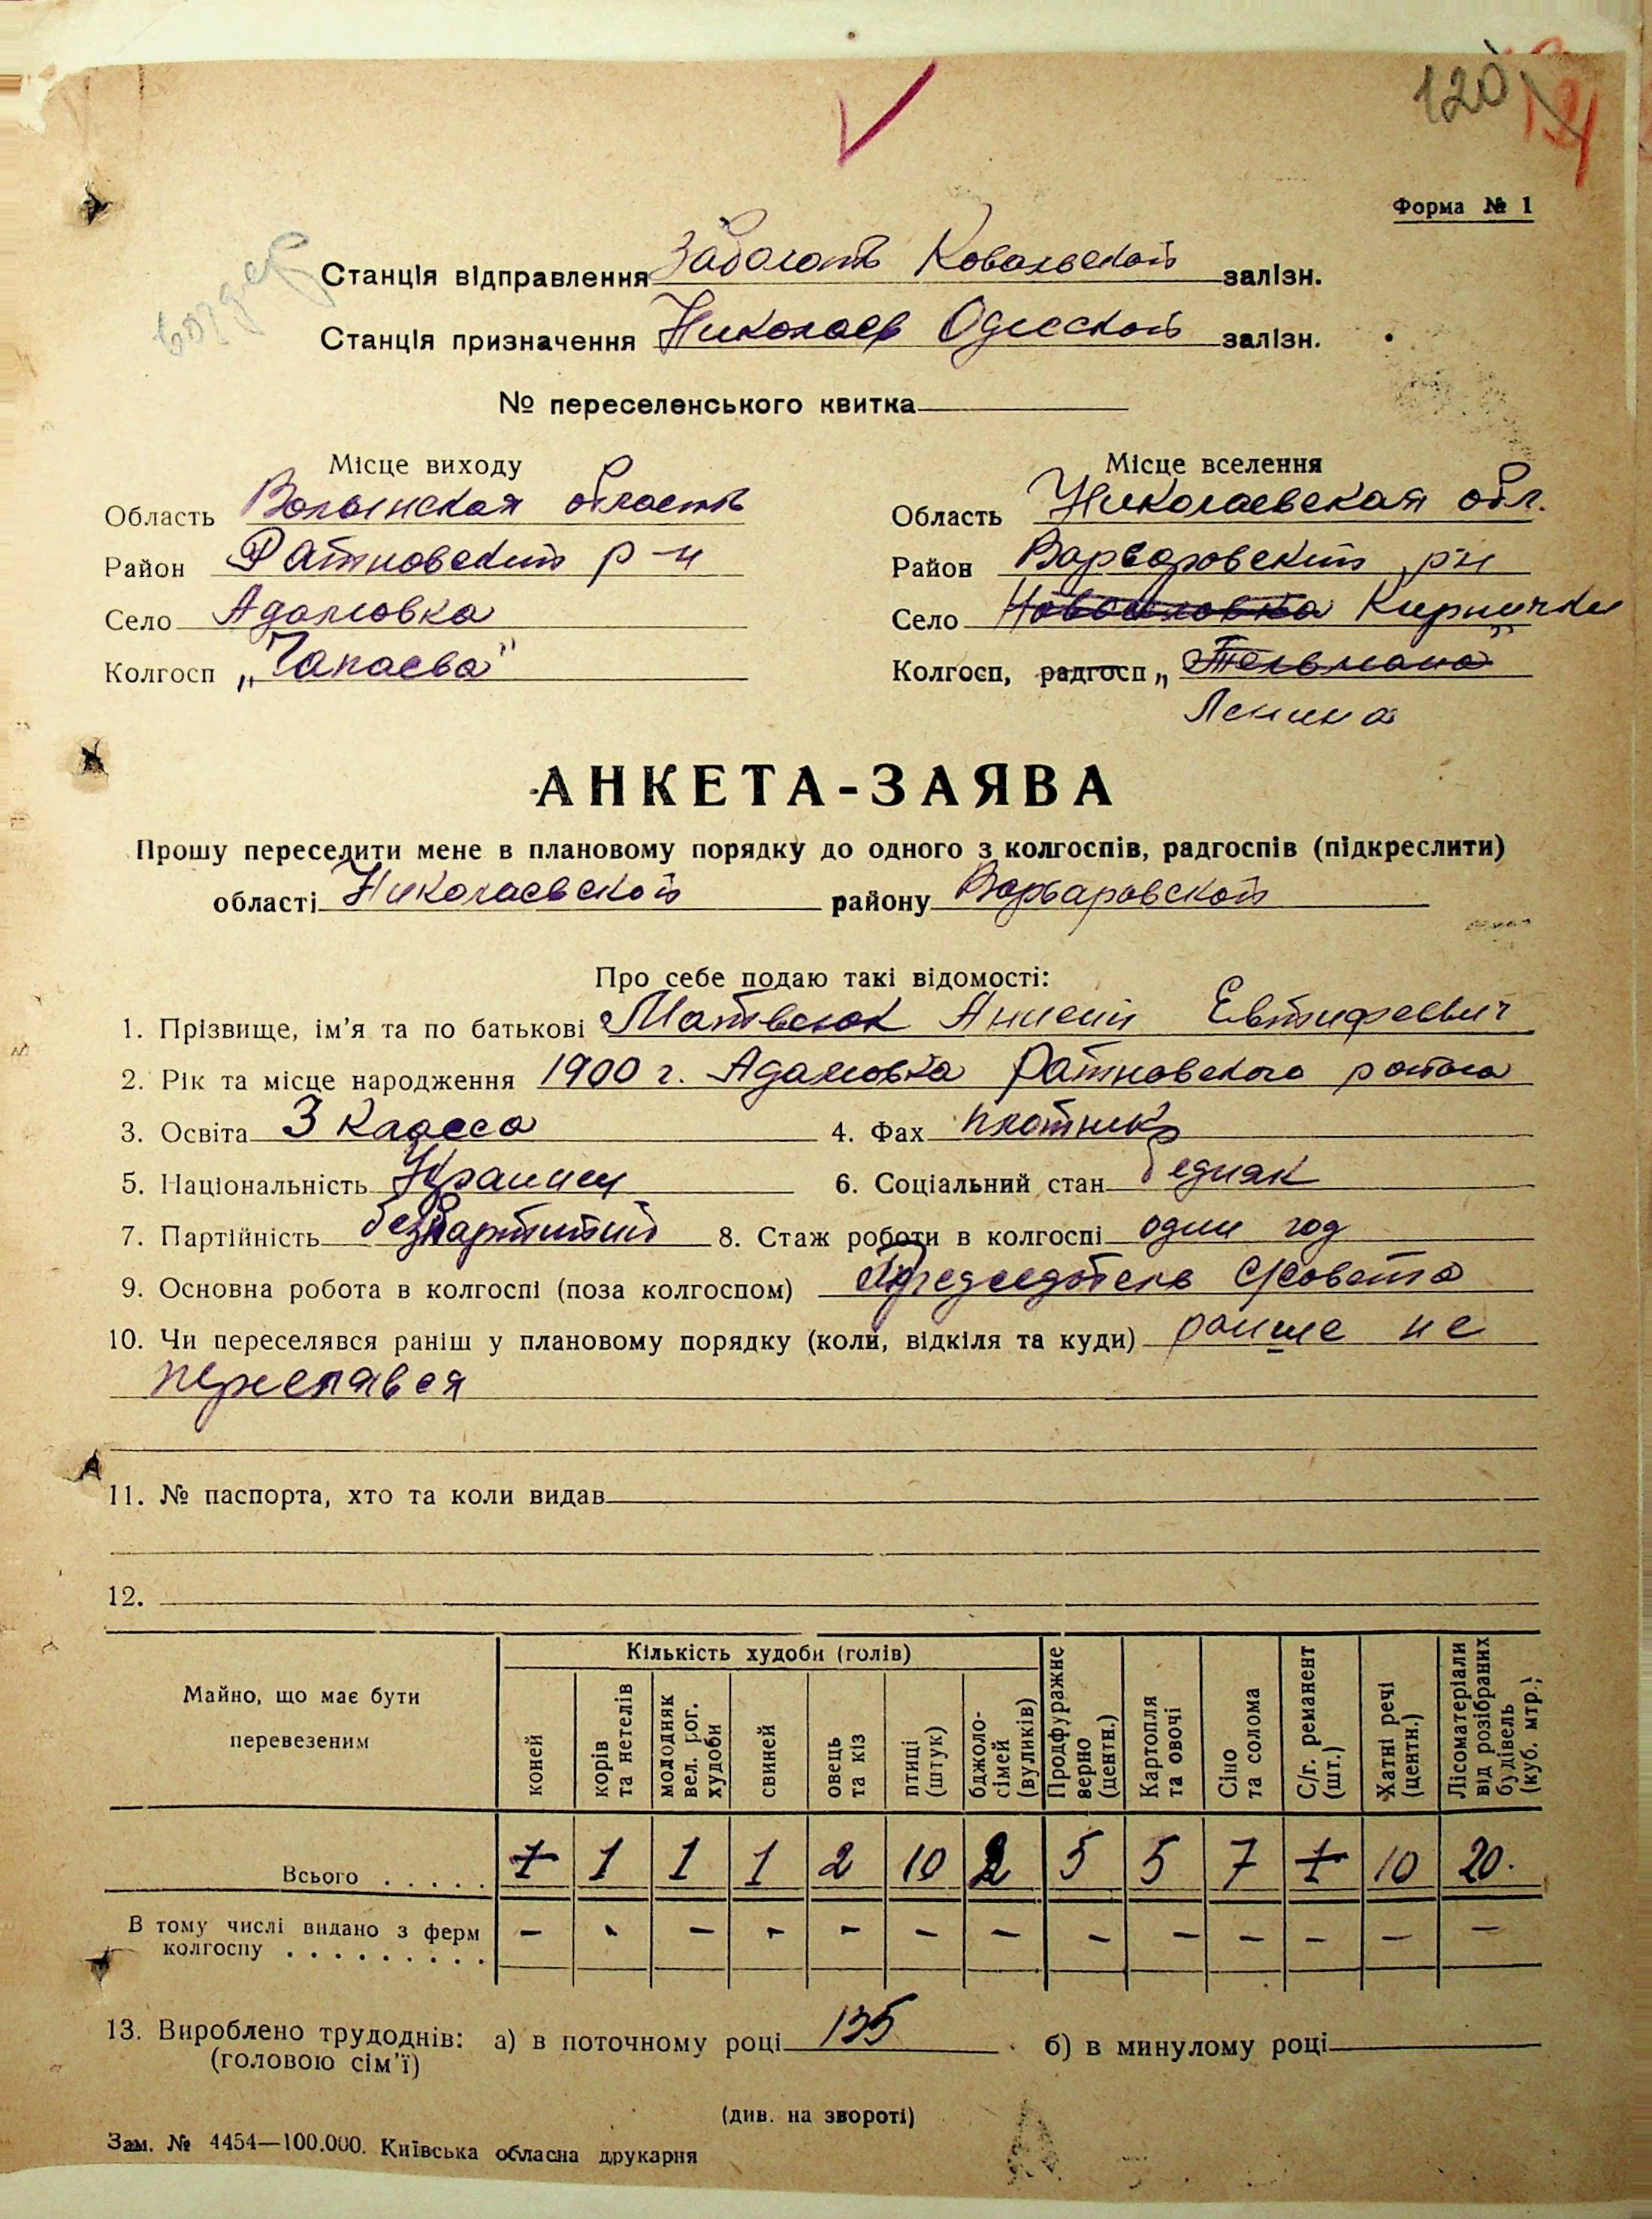 120
Форма № 1
Станція відправлення Заболоть Ковельской залізн.
Станція призначення Николаев Одесской залізн.
№ переселенського квитка
Місце виходу
Область Волынская область
Район Ратновский р-н
Село Адамовка
Колгосп „Чапаева"
Місце вселення
Область Николаевская обл.
Район Варваровский р-н
Село Кирпички
Колгосп, радгосп „Тельмана"
Ленина
АНКЕТА-ЗАЯВА
Прошу переселити мене в плановому порядку до одного з колгоспів, радгоспів (підкреслити)
області Николаевской району Варваровской
Про себе подаю такі відомості:
1. Прізвище, ім'я та по батькові Матвеюк Евтифеевич
2. Рік та місце народження 1900 г. Адамовка Ратновского района
3. Освіта 3 класса 4. Фах плотник
5. Національність Украинец 6. Соціальний стан бедняк
7. Партійність безпартийний 8. Стаж роботи в колгоспі один год
9. Основна робота в колгоспі (поза колгоспом) Председатель с/совета
10. Чи переселявся раніш у плановому порядку (коли, відкіля та куди) раньше не
переселявся
11. № паспорта, хто та коли видав
12.
Майно, що має бути перевезеним
Кількість худоби (голів)
коней
корів та нетелів
молодняк вел. рог. худоби
свиней
овець та кіз
птиці (штук)
бджоло-сімей (вуликів)
Продфуражне верно (центн.)
Картопля та овочі
Сіно та солома
С/г. реманент (шт.)
Хатні речі (центн.)
Лісоматеріали від розібраних будівель (куб. мтр.)
Всього . . . . . 1 1 1 1 2 10 2 5 5 7 1 10 20.
В тому числі видано з ферм
колгоспу . . . . . . . . . – – – – – – – – – – – – –
13. Вироблено трудоднів: а) в поточному році 135 б) в минулому році
(головою сім'ї)
(див. на звороті)
Зам. № 4454—100.000. Київська обласна друкарня